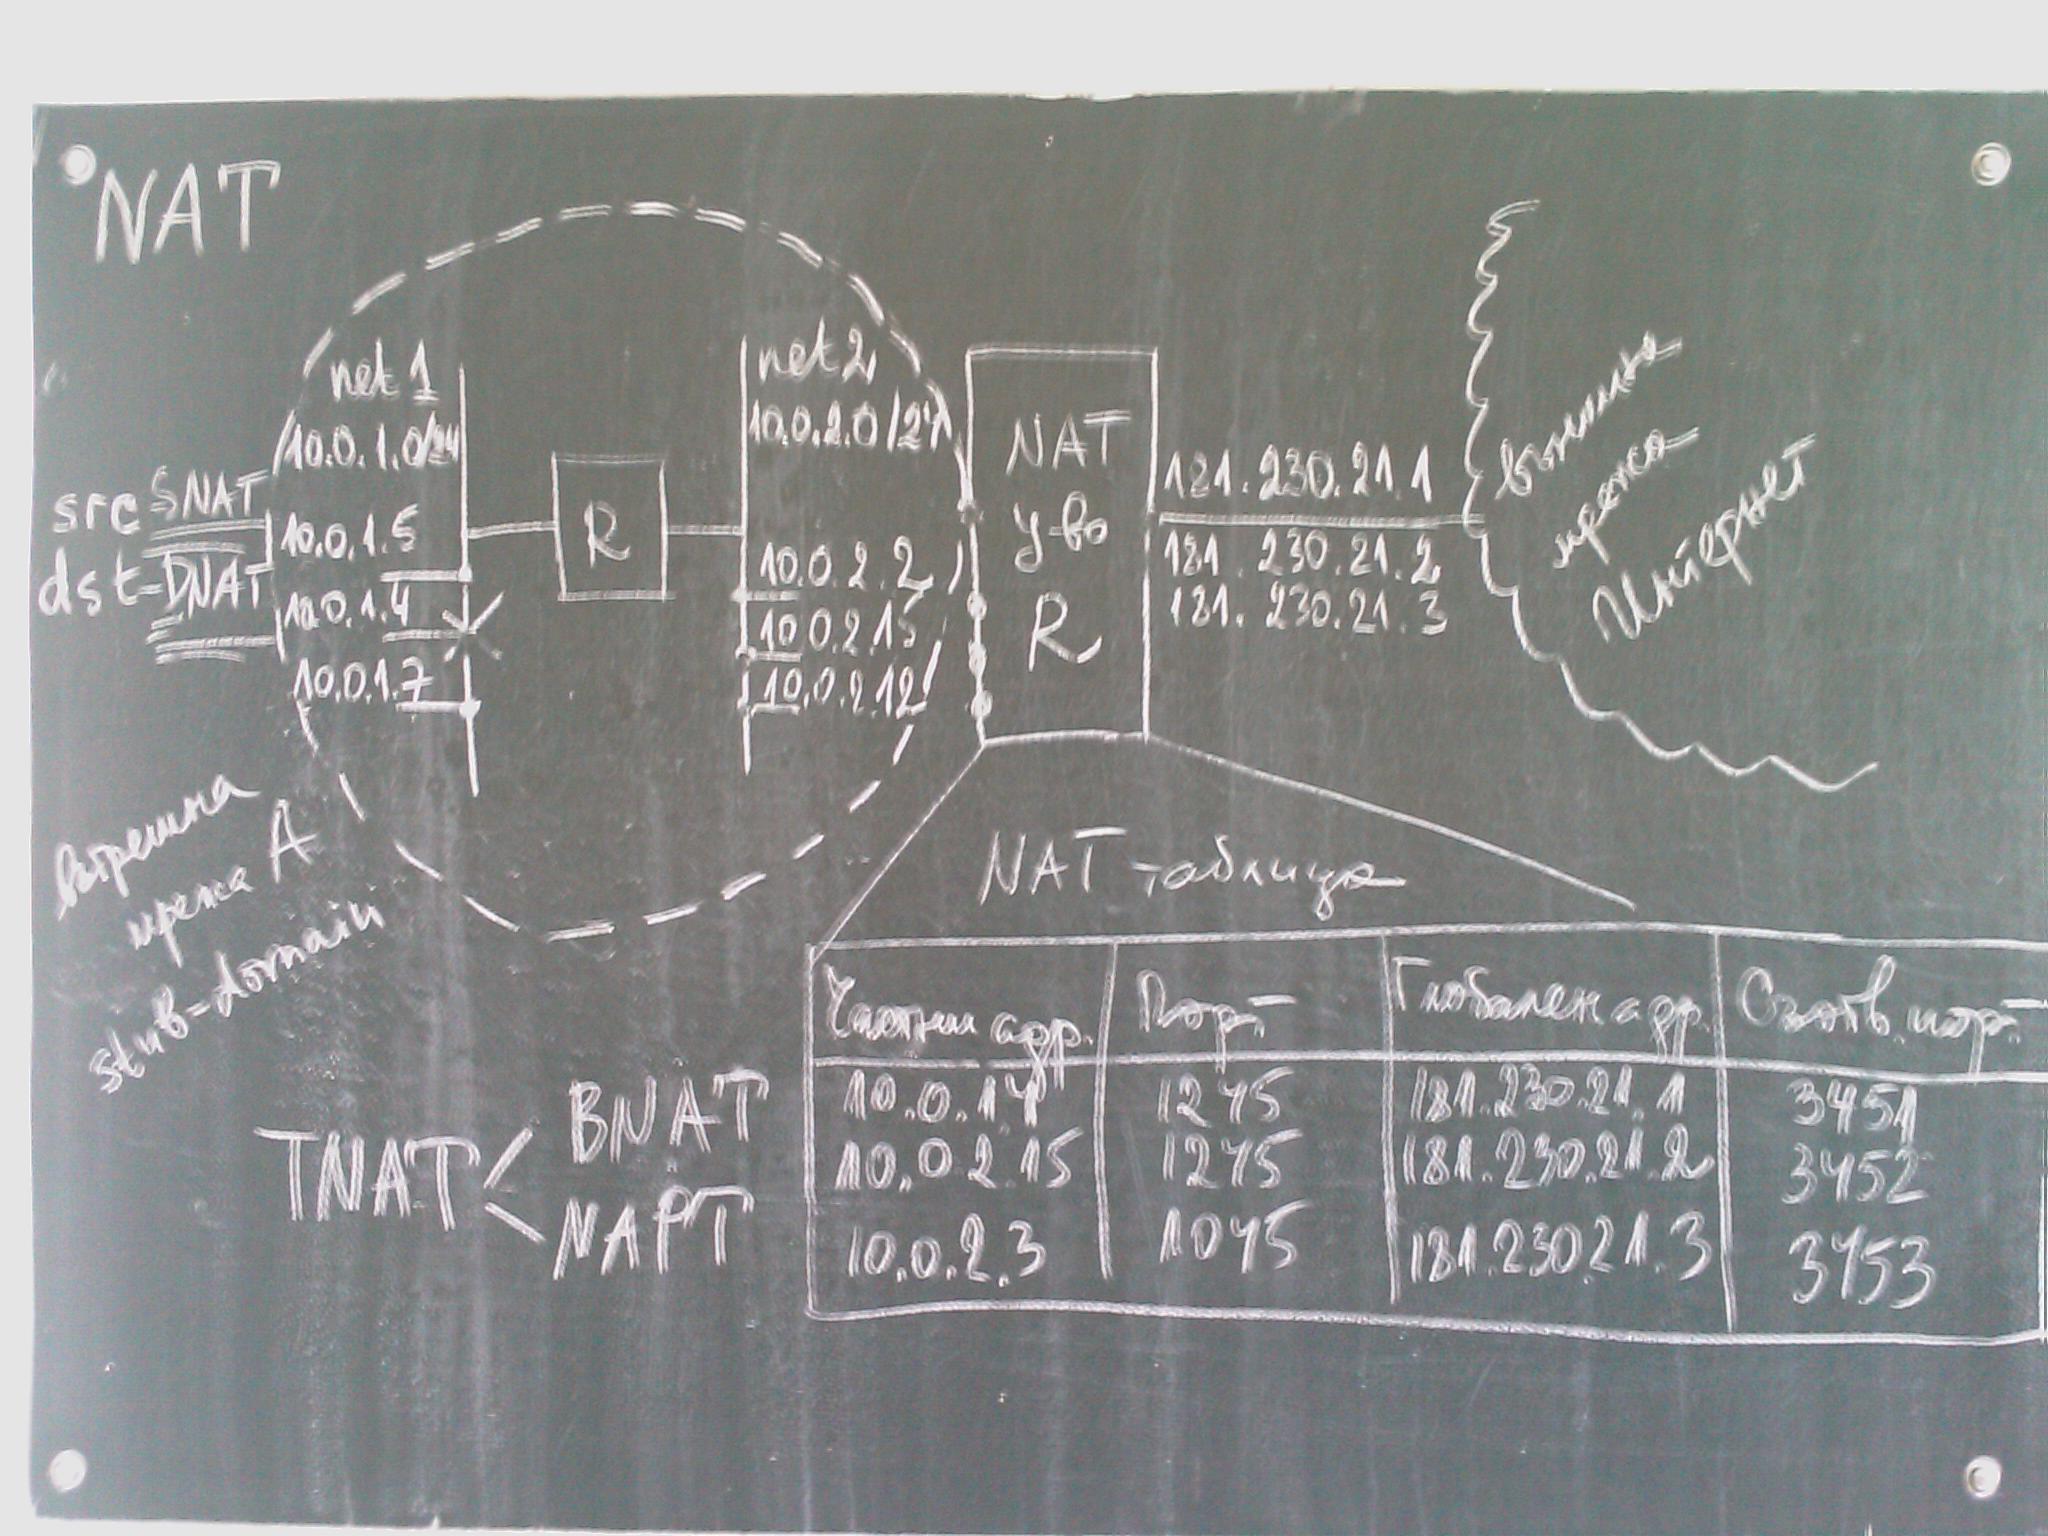 NAT
net 1
10.0.1.0/24
src SNAT
dst-DNAT
10.0.1.5
10.0.1.4
10.0.1.7
R
net 2
10.0.2.0/24
10.0.2.2
10.0.2.15
10.0.2.12
NAT
у-во
R
181.230.21.1
181.230.21.2
181.230.21.3
външна
мрежа
Интернет
вътрешна
мрежа А
stub-domain
TNAT < BNAT
NAPT
NAT таблица
Частни адр. Порт Глобален адр. Съотв. порт
10.0.1.4 1245 181.230.21.1 3451
10.0.2.15 1245 181.230.21.2 3452
10.0.2.3 1045 181.230.21.3 3453